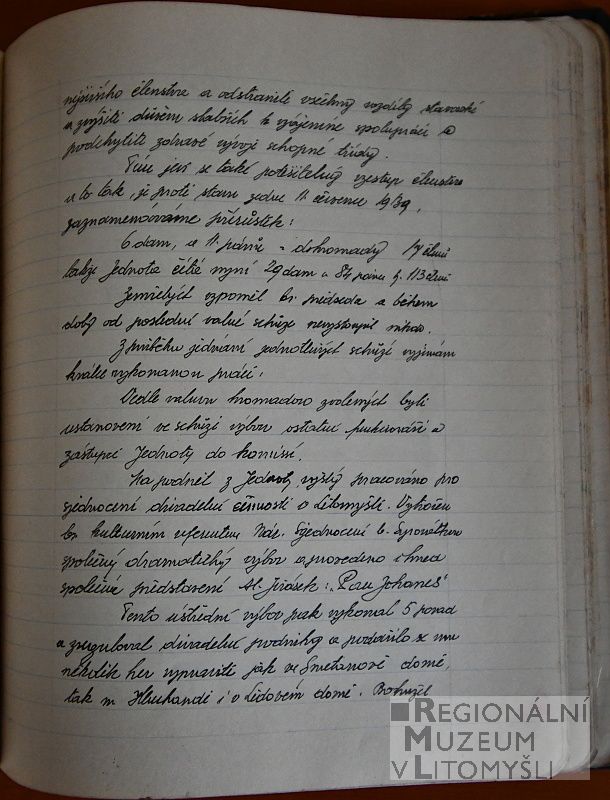 nějšího členstva a odstranili všechny rozdíly stavovské
a zvýšiti duševn slabších k vzájemné spolupráci a
podchytiti zdravé vývoje schopné třídy.
Tím jeví se také potěšitelný vzestup členstva
a to tak, že proti stavu ze dne 11. července 1939.
zaznamenáváme přírůstek:
6 dam, a 11. pánů - dohromady 17 členů
takže Jednota čítá nyní 29 dam a 84 pánů tj. 113 členů
Zemřelých vzpomněl br. předseda a během
doby od poslední valné schůze nevystoupil nikdo.
Z průběhu jednání jednotlivých schůzí vyjímám
krátce vykonanou práci:
Vedle valnou hromadou zvolených byli
ustanoveni ve schůzi výbor. ostatní funkcionáři a
zástupci Jednoty do komisí.
Na podnět z Jednoty vyšlý pracováno pro
sjednocení divadelní činnosti v Litomyšli. Vytvořen
br. kulturním referentem Nár. Sjednocení b. Syrovátkou
společný dramatický výbor a provedeno ihned
společné představení Al. Jirásek: "Pan Johanes"
Tento ústřední výbor pak vykonal 5 porad
a zreguloval divadelní podniky a podařilo se mu
několik her vypraviti jak ve Smetanově domě,
tak na i v Lidovém domě. Bohužel
REGIONÁLNÍ
MUZEUM
V LITOMYŠLI